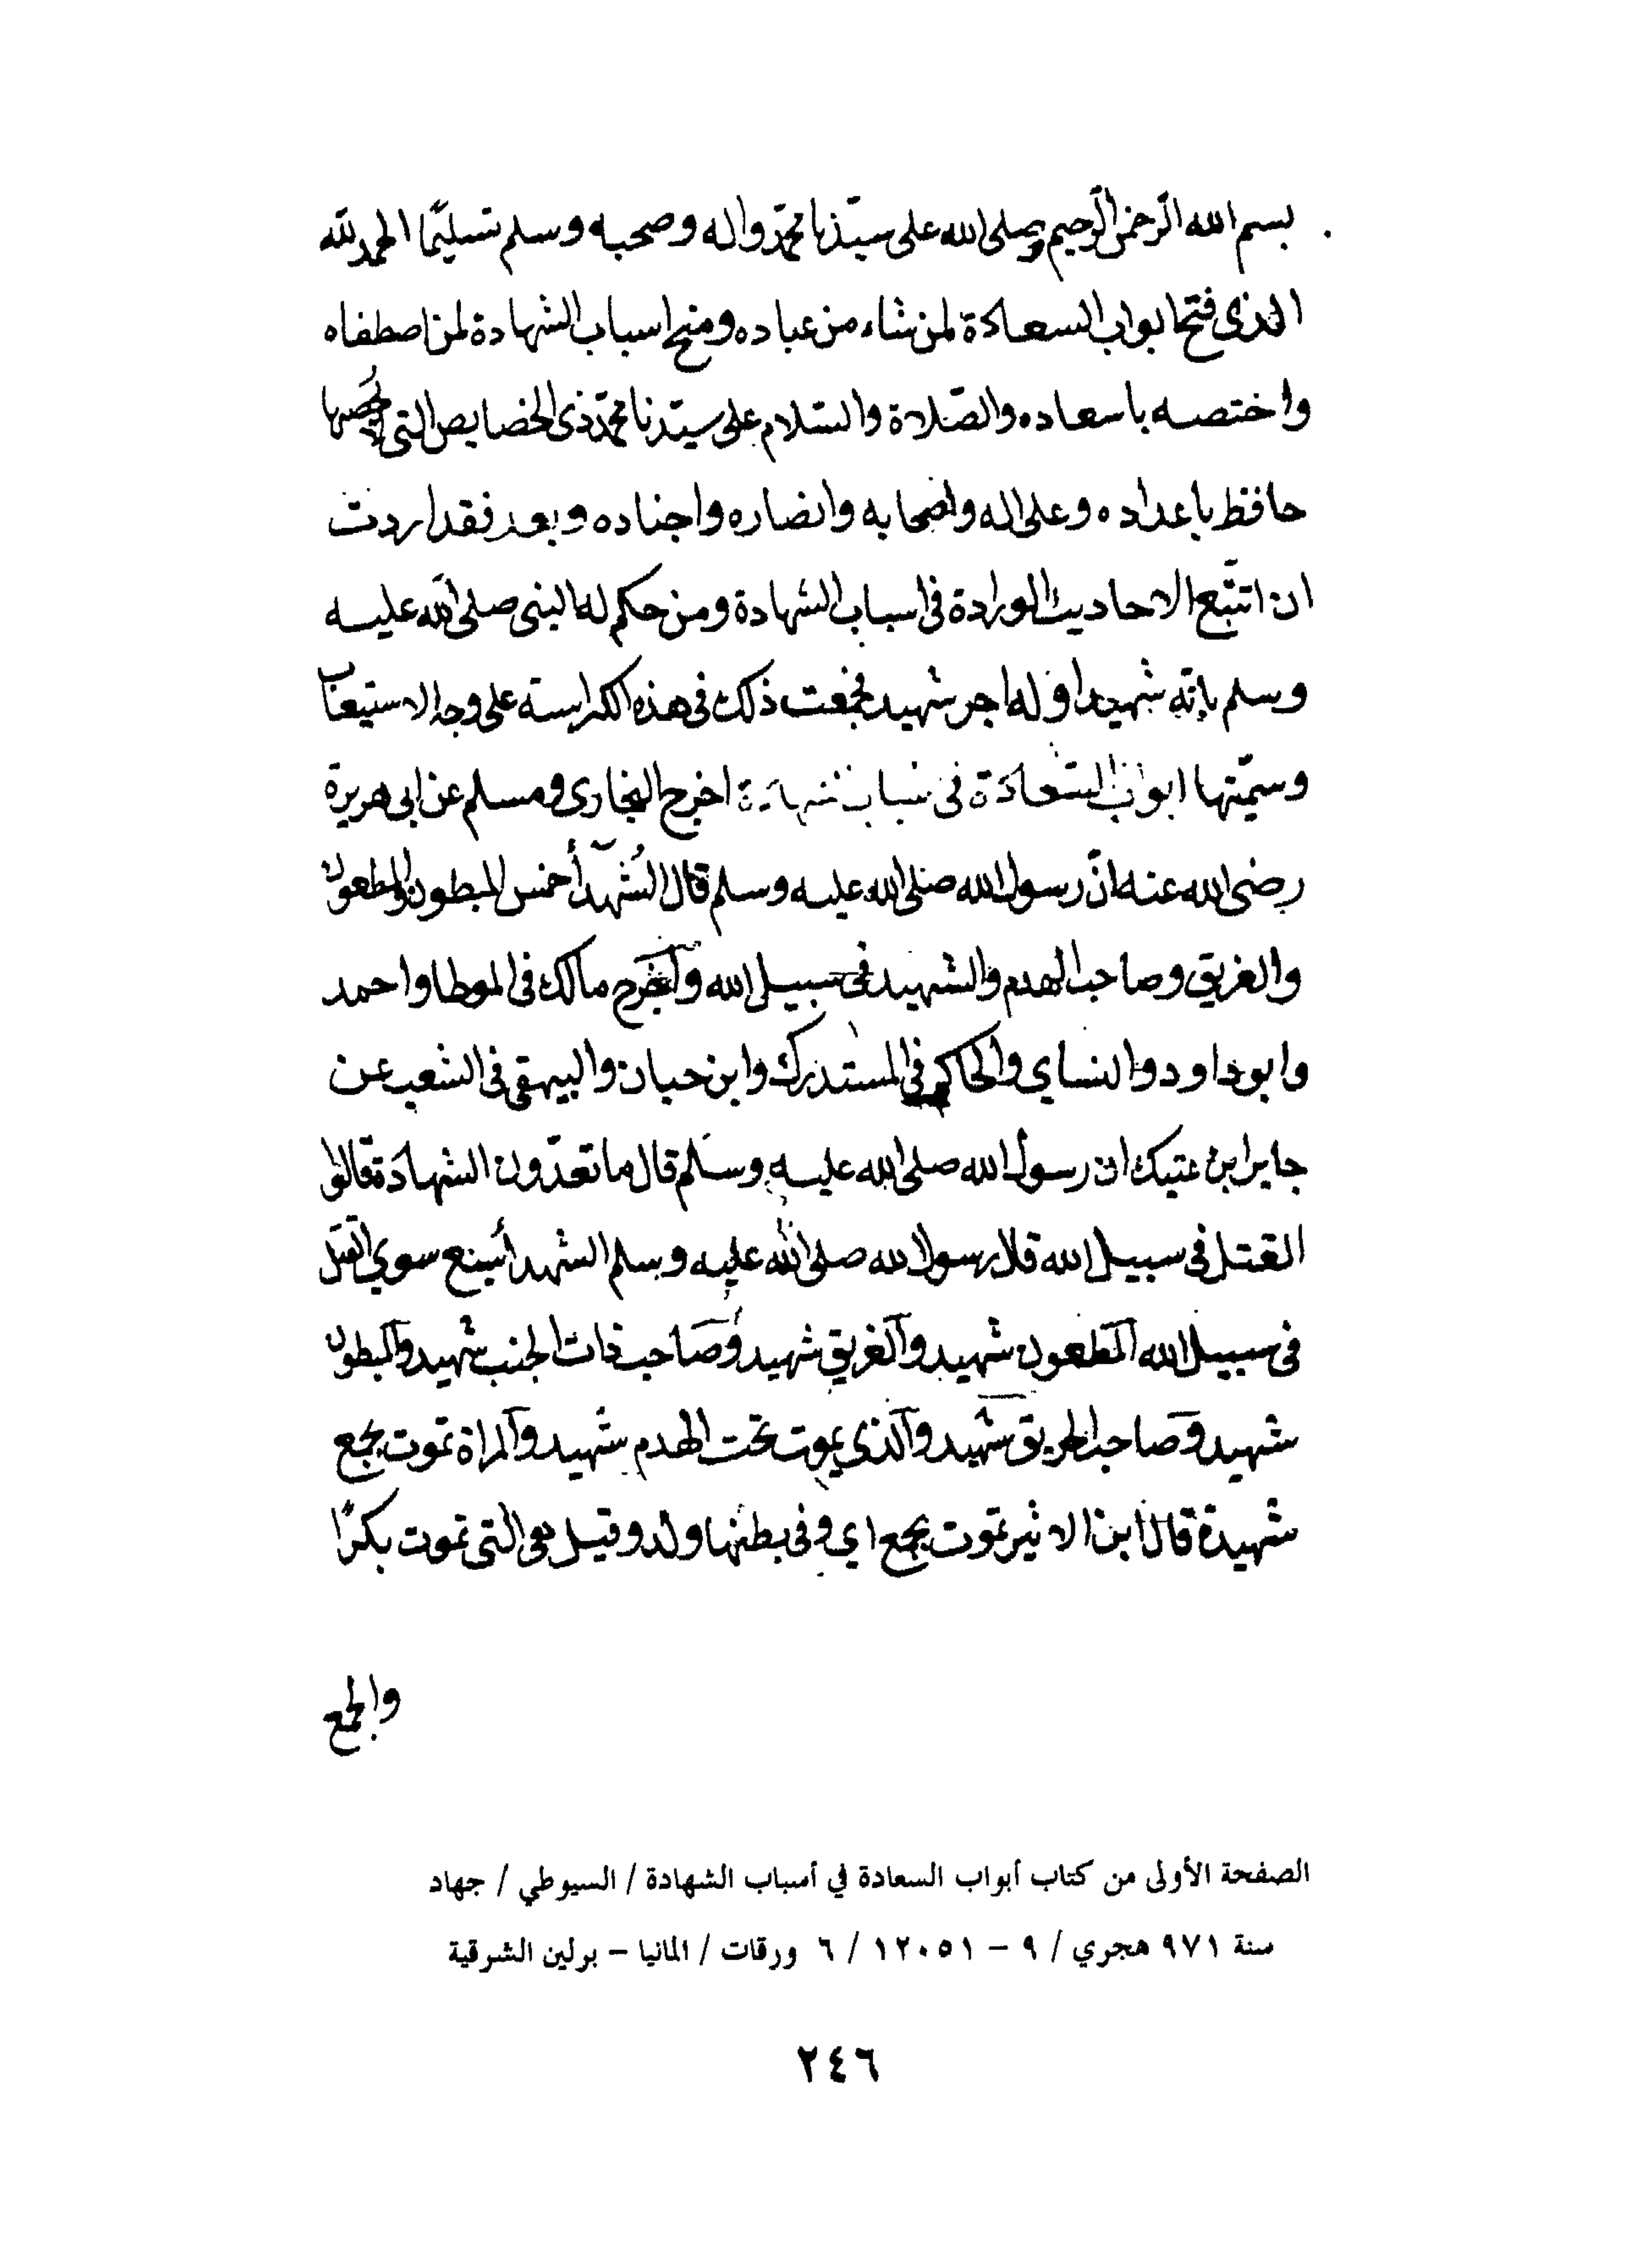 بسم الله الرّحمن الرّحيم وصلى الله على سيّدنا محمّد واله وصحبه وسلم تسليمًا الحمد لله
الذى فتح ابواب السعادة لمن شاء من عباده ومنح اسباب الشهادة لمن اصطفاه
واختصه باسعاده والصّلاة والسّلام على سيّدنا محمّد ذى الخصايص التى
حافظ باعداده وعلى اله واصحابه وانصاره واجناده وبعد فقد اردت
ان اتتبّع الاحاديث الورادة فى اسباب الشهادة ومن حكم له النبى صلى الله عليه
وسلم بانّه شهيد او له اجر شهيد فجمعت ذلك فى هذه الكراسة على وجه الاستيعاب
وسمّيتها ابواب السّعادة فى سباب شهادة اخرج البخارى ومسلم عن ابى هريرة
رضى الله عنه انّ رسول الله صلى الله عليه وسلم قال الشُهدآ خمس المبطون والمطعون
والغريق وصاحب الهدم والشهيد فى سبيل الله وآخرج مالك فى الموطا واحمد
وابو داود والنساي والحاكم فى المستدرك وابن حبان والبيهقى فى الشعب عن
جابر ابن عتيك ان رسول الله صلى الله عليه وسلم قال ما تعدّون الشهادة قالوا
القتل فى سبيل الله قال رسول الله صلى الله عليه وسلم الشهدأ سبع سوي القتل
فى سبيل الله المطعون شهيد والغريق شهيد وصاحب ذات الجنب شهيد والمبطون
شهيد وصاحب الحريق شهيد والذى يموت تحت الهدم شهيد والمراة تموت بجمع
شهيدة قال ابن الاثير تموت بجمع اي وفى بطنها ولد وقيل هى التى تموت بكرًا
والجمع
الصفحة الأولى من كتاب أبواب السعادة في أسباب الشهادة / السيوطي / جهاد
سنة ٩٧١ هجري / ٩ – ١٢٠٥١ / ٦ ورقات / المانيا – برلين الشرقية
٢٤٦